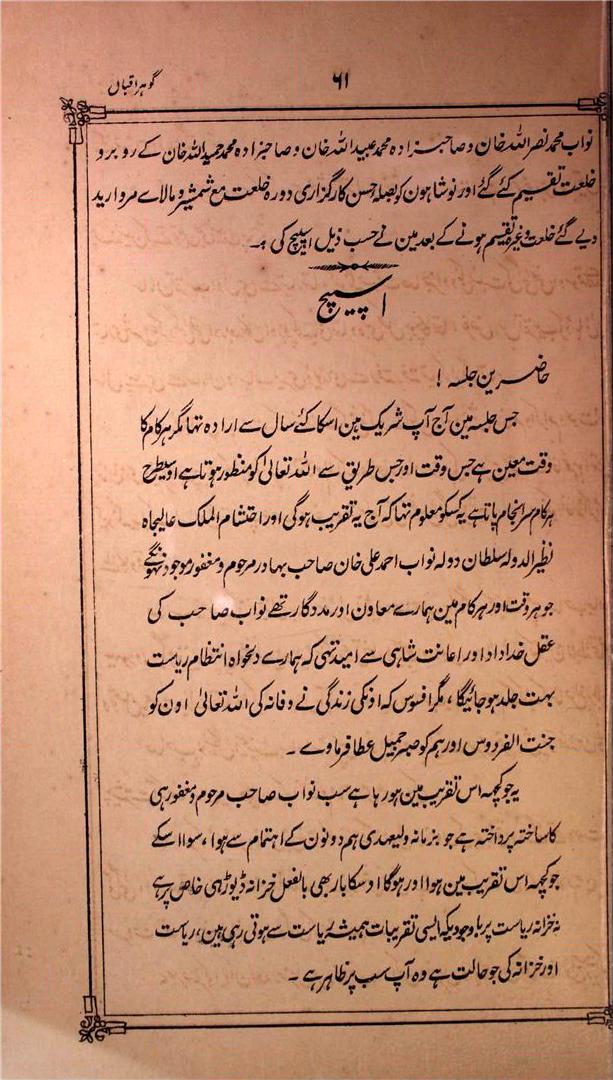 ۶۱ گوہر اقبال
نواب محمد نصر اللہ خان و صاحبزادہ محمد عبید اللہ خان و صاحبزادہ محمد حمید اللہ خان کے روبرو
خلعت تقسیم کئے گئے اور نوشاہون کو بصلہ حسن کارگزاری دورہ خلعت مع شمشیر و مالاے مروارید
دیے گئے خلعت وغیرہ تقسیم ہونے کے بعد مین نے حسب ذیل اسپیچ کی ۔
اسپیچ
حاضرین جلسہ !
جس جلسہ مین آج آپ شریک ہین اسکا کئے سال سے ارادہ تہا مگر ہر کام کا
وقت معین ہے جس وقت اور جس طریق سے اللہ تعالیٰ کو منظور ہوتا ہے اوسیطرح
ہر کام سرانجام پاتا ہے یہ کسکو معلوم تہا کہ آج یہ تقریب ہوگی اور احتشام الملک عالیجاہ
نظیر الدولہ سلطان دولہ نواب احمد علی خان صاحب بہادر مرحوم و مغفور موجود نہونگے
جو ہر وقت اور ہر کام مین ہمارے معاون اور مددگار تھے نواب صاحب کی
عقل خداداد اور اعانت شاہی سے امید تہی کہ ہمارے دلخواہ انتظام ریاست
بہت جلد ہو جائیگا ، مگر افسوس کہ اونکی زندگی نے وفا نہ کی اللہ تعالیٰ اون کو
جنت الفردوس اور ہم کو صبر جمیل عطا فرماوے ۔
یہ جو کچھہ اس تقریب مین ہو رہا ہے سب نواب صاحب مرحوم و مغفور ہی
کا ساختہ پرداختہ ہے جو بزمانہ ولیعہدی ہم دونون کے اہتمام سے ہوا ، سوا اسکے
جو کچھہ اس تقریب مین ہوا اور ہوگا اوسکا بار بھی بالفعل خزانہ ڈیوڑہی خاص پر ہے
نہ خزانہ ریاست پر باوجودیکہ ایسی تقریبات ہمیشہ ریاست سے ہوتی رہی ہین ، ریاست
اور خزانہ کی جو حالت ہے وہ آپ سب پر ظاہر ہے ۔